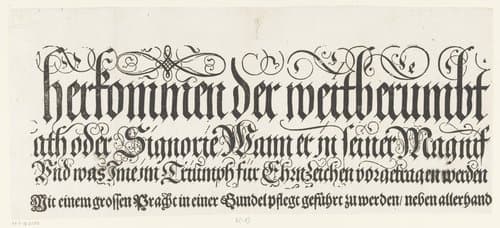 herkommen der weitberumbt
ath oder Signorie Wann er in seiner Magnif
Vnd was Ime im Triumph für Ehrnzeichen vorgetragen werden
Mit einem grossen Pracht in einer Gundel pflegt geführt zu werden / neben allerhand